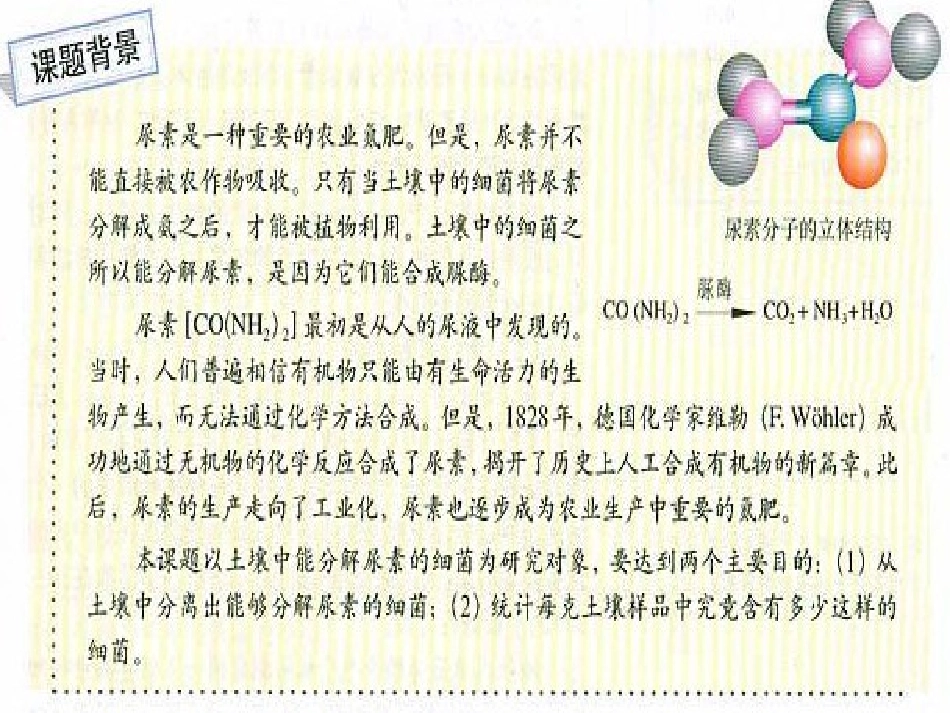 课题背景
尿素是一种重要的农业氮肥。但是，尿素并不
能直接被农作物吸收。只有当土壤中的细菌将尿素
分解成氨之后，才能被植物利用。土壤中的细菌之
所以能分解尿素，是因为它们能合成脲酶。
尿素分子的立体结构
脲酶
CO(NH₂)₂ → CO₂+NH₃+H₂O
尿素[CO(NH₂)₂]最初是从人的尿液中发现的。
当时，人们普遍相信有机物只能由有生命活力的生
物产生，而无法通过化学方法合成。但是，1828年，德国化学家维勒（F. Wöhler）成
功地通过无机物的化学反应合成了尿素，揭开了历史上人工合成有机物的新篇章。此
后，尿素的生产走向了工业化，尿素也逐步成为农业生产中重要的氮肥。
本课题以土壤中能分解尿素的细菌为研究对象，要达到两个主要目的：（1）从
土壤中分离出能够分解尿素的细菌；（2）统计每克土壤样品中究竟含有多少这样的
细菌。